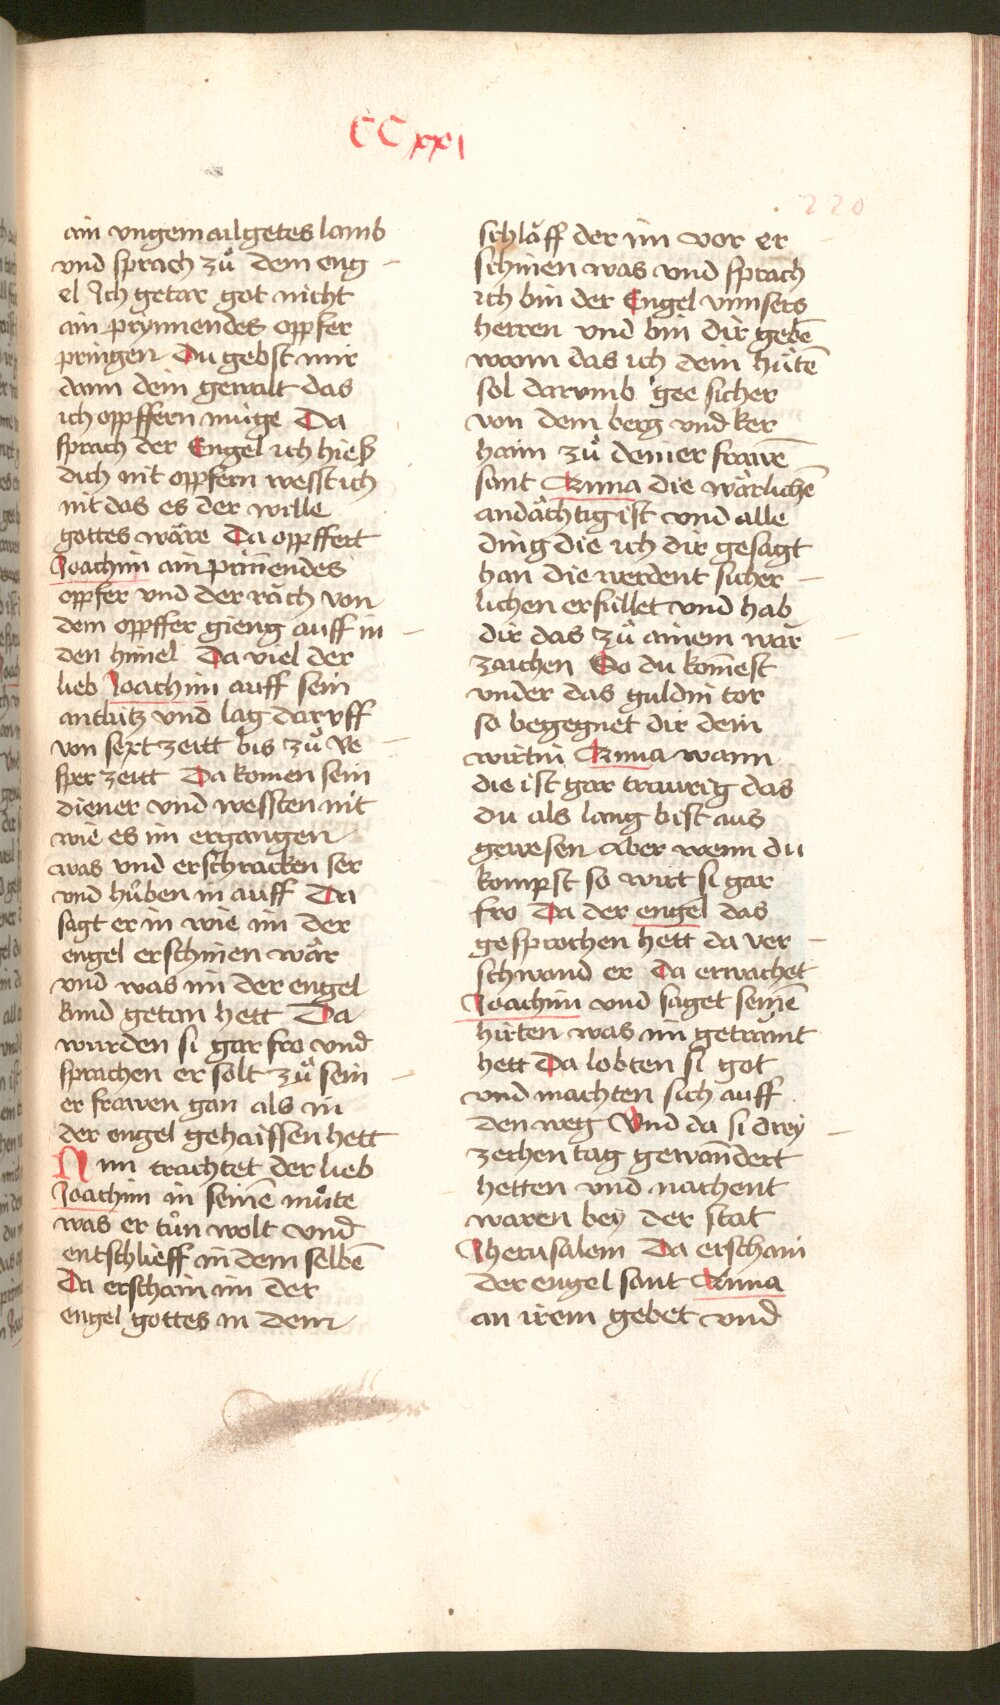 CCxxi
220
ain vngemailgetes lamb
vnd sprach zuͦ dem eng
el Ich getar got nicht
ain prynnendes oppfer
pringen Du gebst mir
dann dein gewalt das
ich oppffern muge Da
sprach der Engel ich hieß
dich nit oppfern wesst ich
nit das es der wille
gottes wäre Da oppffert
Joachim ain prin̄endes
oppfer vnd der räch von
dem oppffer gieng auff in
den himel Da viel der
lieb Joachim auff sein
antlitz vnd lag daruff
von sext zeitt bis zuͦ ve
sper zeitt Da komen sein
diener vnd wessten nit
wie es im ergangen
was vnd erschracken ser
vnd huͦben in auff Da
sagt er in wie im der
engel erschinen wär
vnd was im der engel
kund getan hett Da
wurden si gar fro vnd
sprachen er solt zuͦ sein
er frawen gan als in
der engel gehaissen hett
Nun trachtet der lieb
Joachim in seinē muͦte
was er tuͦn wolt vnd
entschlieff in dem selbē
Da erschain im der
engel gottes in dem
schläff der im vor er
schinen was vnd sprach
ich bin der Engel vnnsers
herren vnd bin dir gebē
wann das ich dein huͤtē
sol darumb gee sicher
von dem berg vnd ker
haim zuͦ deiner frawē
sant Anna die wärlichē
andächtig ist vnd alle
ding die ich dir gesagt
han die werdent sicher
lichen erfullet vnd hab
dir das zuͦ ainem war
zaichen So du kom̄est
vnder das guldin tor
so begegnet dir dein
wirtin Anna wann
die ist gar traurig das
du als lang bist aus
gewesen Aber wenn du
kompst so wirt si gar
fro Da der engel das
gesprochen hett da ver
schwand er Da erwachet
Joachim vnd saget seinē
hirten was im getramt
hett Da lobten si got
vnd machten sich auff
den weg Vnd da si drey
zechen tag gewandert
hetten vnd nachent
waren bey der stat
Jherusalem Da erschain
der engel sant Anna
an irem gebet vnd